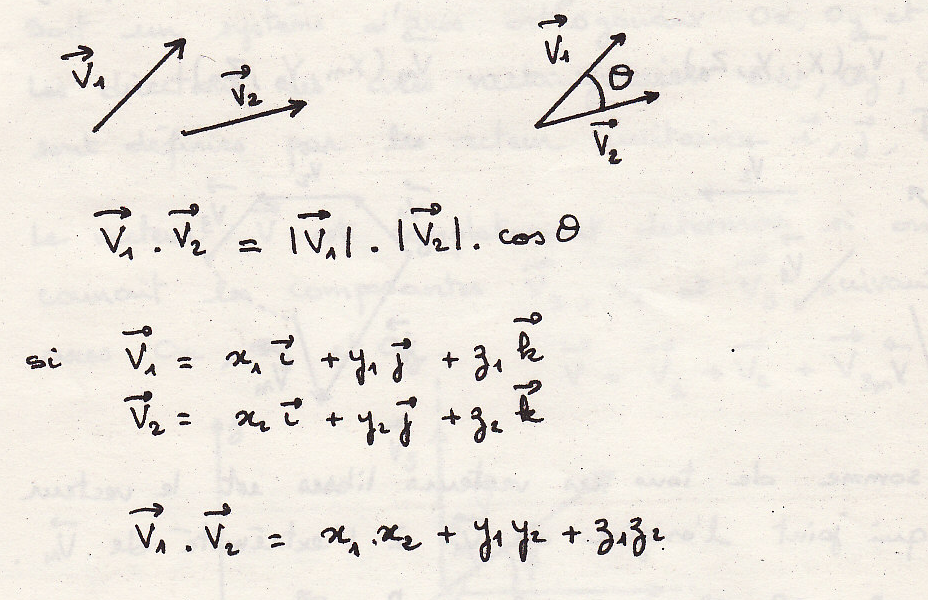 V⃗₁ V⃗₂ V⃗₁ θ V⃗₂
V⃗₁ . V⃗₂ = |V⃗₁| . |V⃗₂| . cos θ
si V⃗₁ = x₁ i⃗ + y₁ j⃗ + z₁ k⃗
V⃗₂ = x₂ i⃗ + y₂ j⃗ + z₂ k⃗
V⃗₁ . V⃗₂ = x₁ . x₂ + y₁ y₂ + z₁ z₂